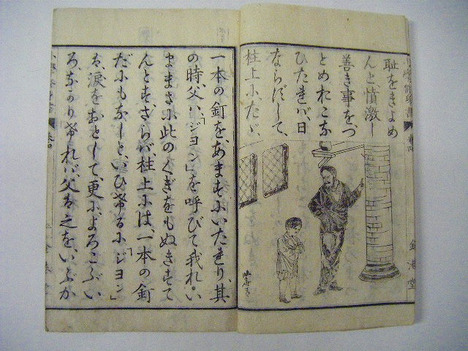 耻をきよめ
んと憤激し
善き事をつ
とめおこな
ひたれバ日
ならずして、
柱上にたゞ
一本の釘を、あますにいたれり、其
の時父ハ、「ジヨン」を呼びて我れ、い
ままさに此のくぎをもぬきすて
んとすさらバ柱上にハ一本の釘
だにもなしと、いひけるに「ジヨン」
ハ、涙をおとして、更によろこぶい
ろなかりけれバ、父ハ之をいぶか